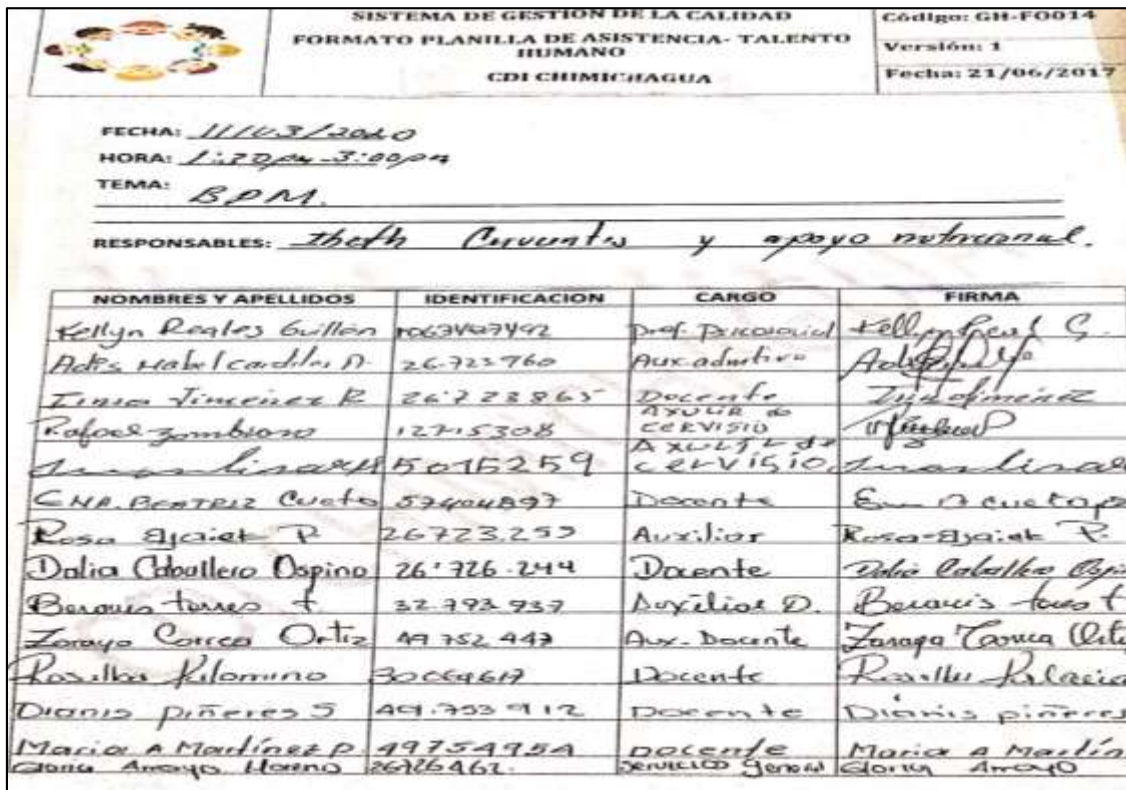 SISTEMA DE GESTION DE LA CALIDAD
FORMATO PLANILLA DE ASISTENCIA- TALENTO HUMANO
CDI CHIMICHAGUA
Código: GH-FO014
Versión: 1
Fecha: 21/06/2017
FECHA: 11/03/2020
HORA: 1:30pm-3:00pm
TEMA: BPM.
RESPONSABLES: Ibeth Cervantes y apoyo nutricional.
NOMBRES Y APELLIDOS IDENTIFICACION CARGO FIRMA
Kellyn Reales Guillen Prof. Psicosocial Kellyn Reales G.
Adis Mabel 26.723960 Aux. admitivo
Jimenez R 26'723865 Docente Jimenez
Rafael Zambrano 12715308 AXULIR de CERVISIO
5015259 AXULIR de cervisio
ENA. BEATRIZ Cueto 57404897 Docente
Rosa P 26723.253 Auxiliar Rosa P.
Dalia Caballero Ospino 26'726.244 Docente Dalia Caballero
Beraris torres t. 32.793.937 Auxiliar D. Beraris torres t
Zoraya Correa Ortiz 49 752 447 Aux. Docente Zoraya Correa
Rosilba Docente Rosilba
Dianis piñeres S 49.753 912 Docente Dianis piñeres
Maria A Martínez P. 49754954 Docente Maria A Martín
Gloria Arroyo Moreno 26726462. servicio General Gloria Arroyo